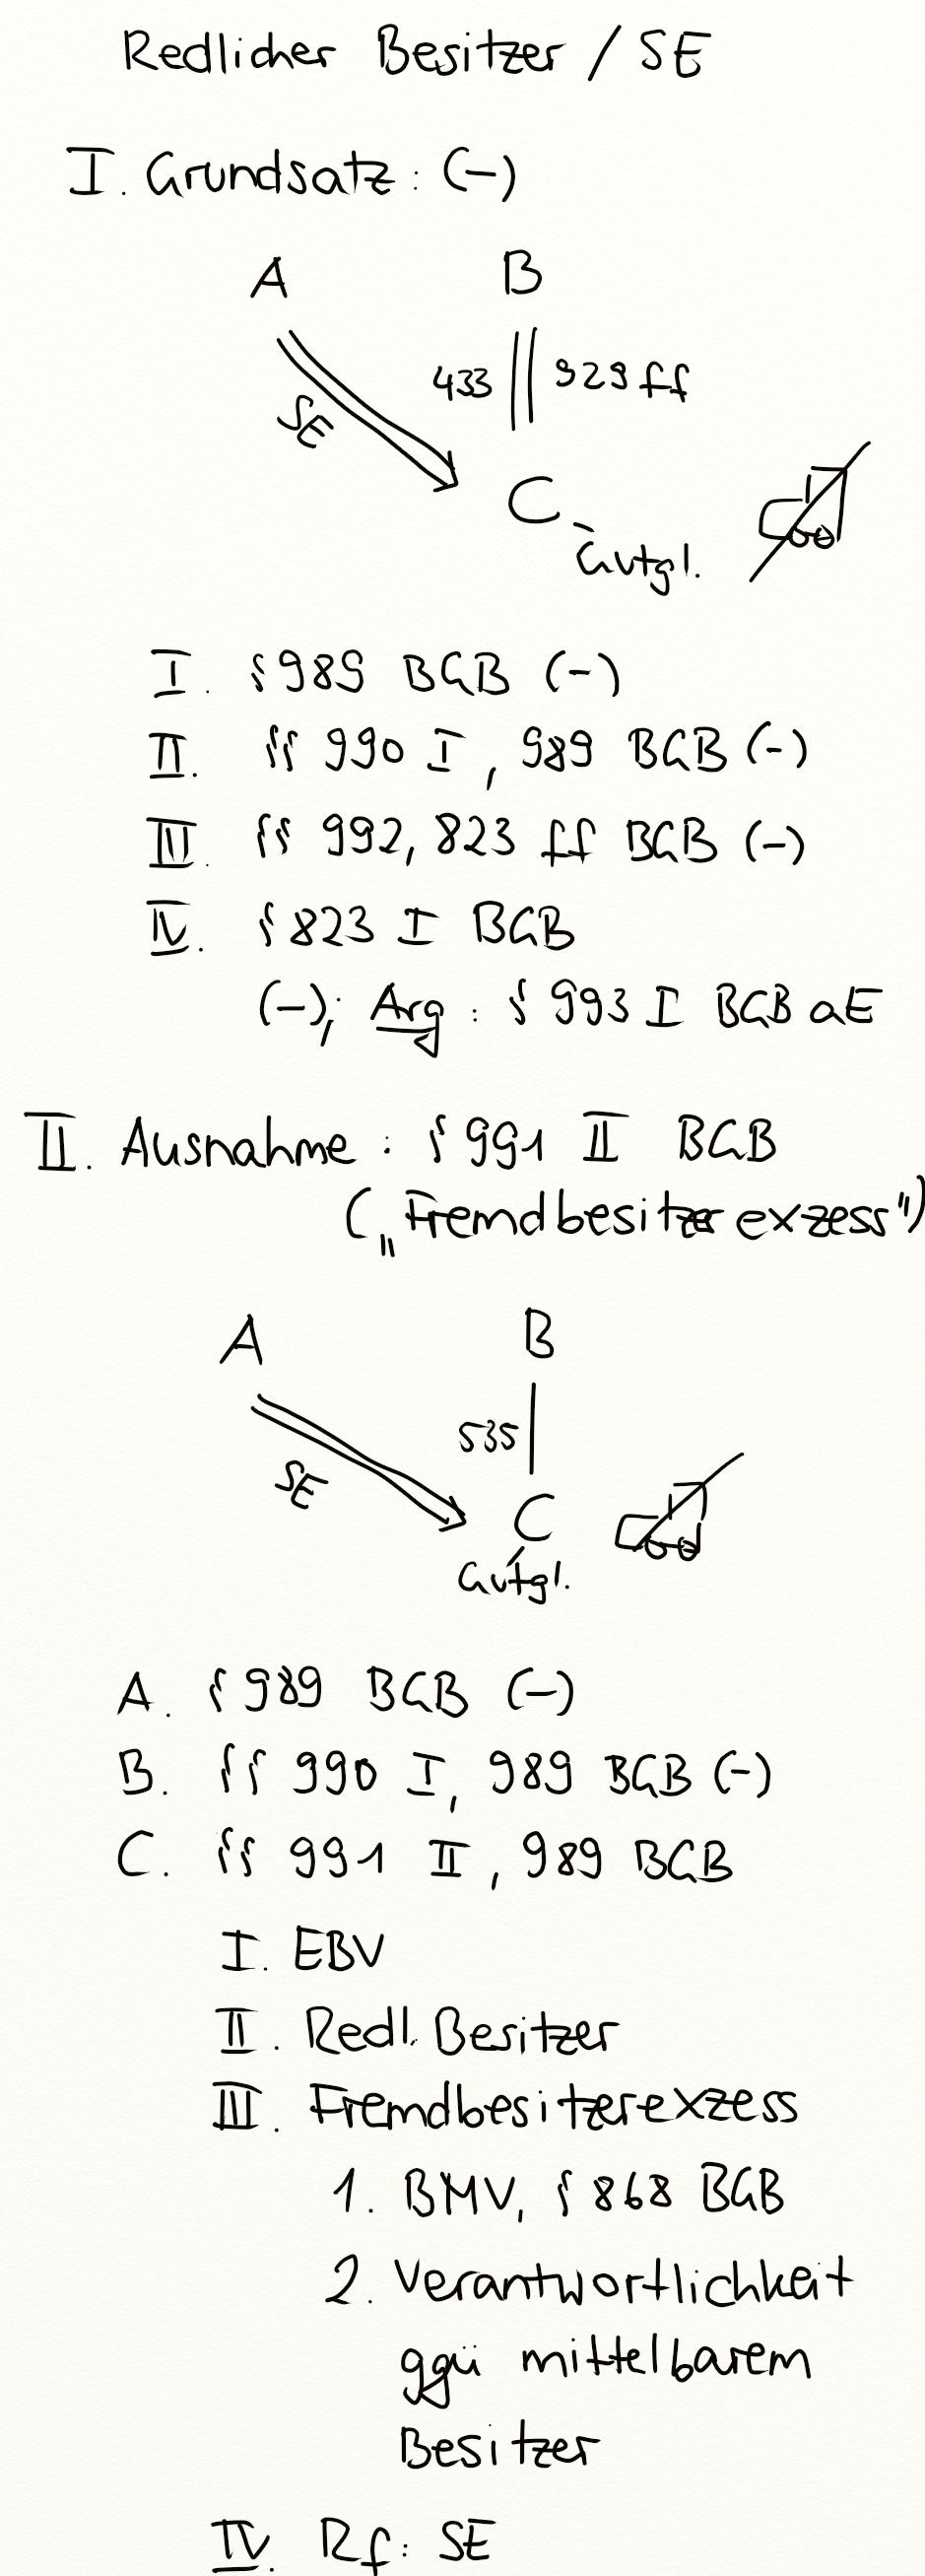 Redlicher Besitzer / SE
I. Grundsatz: (-)
A B
433 929 ff
SE
C
Gutgl.
I. § 989 BGB (-)
II. §§ 990 I, 989 BGB (-)
III. §§ 992, 823 ff BGB (-)
IV. § 823 I BGB
(-); Arg: § 993 I BGB aE
II. Ausnahme: § 991 II BGB
(„Fremdbesitzerexzess")
A B
535
SE
C
Gutgl.
A. § 989 BGB (-)
B. §§ 990 I, 989 BGB (-)
C. §§ 991 II, 989 BGB
I. EBV
II. Redl. Besitzer
III. Fremdbesitzerexzess
1. BMV, § 868 BGB
2. Verantwortlichkeit
ggü mittelbarem
Besitzer
IV. Rf: SE